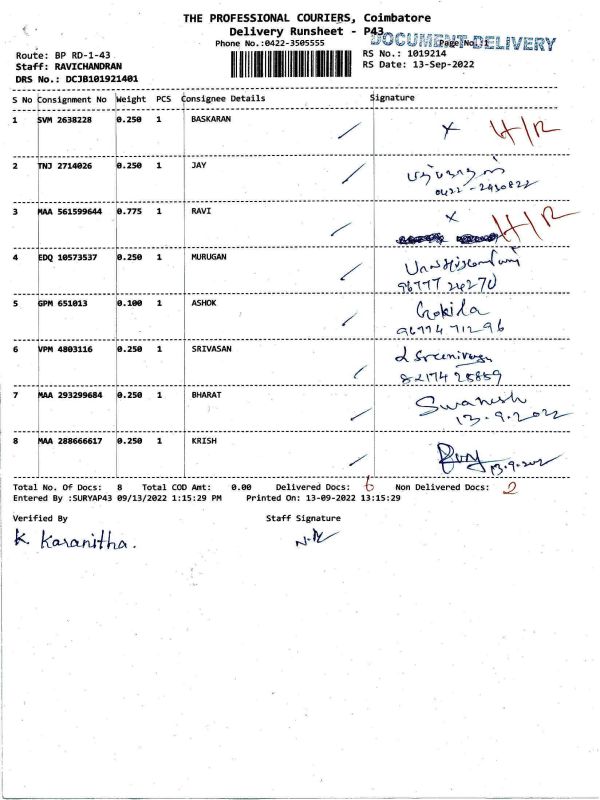 THE PROFESSIONAL COURIERS, Coimbatore
Delivery Runsheet - P43
DOCUMENT DELIVERY
Phone No.:0422-3505555
Page No.:1
Route: BP RD-1-43
RS No.: 1019214
Staff: RAVICHANDRAN
RS Date: 13-Sep-2022
DRS No.: DCJB101921401
S No Consignment No Weight PCS Consignee Details Signature
1 SVM 2638228 0.250 1 BASKARAN x H/R
2 TNJ 2714026 0.250 1 JAY
0422-2430822
3 MAA 561599644 0.775 1 RAVI x H/R
4 EDQ 10573537 0.250 1 MURUGAN
96777 24270
5 GPM 651013 0.100 1 ASHOK Gokila
96774 71296
6 VPM 4803116 0.250 1 SRIVASAN
82174 25859
7 MAA 293299684 0.250 1 BHARAT Swanesh
13.9.2022
8 MAA 288666617 0.250 1 KRISH 13.9.2022
Total No. Of Docs: 8 Total COD Amt: 0.00 Delivered Docs: 6 Non Delivered Docs: 2
Entered By :SURYAP43 09/13/2022 1:15:29 PM Printed On: 13-09-2022 13:15:29
Verified By Staff Signature
K Karanitha.